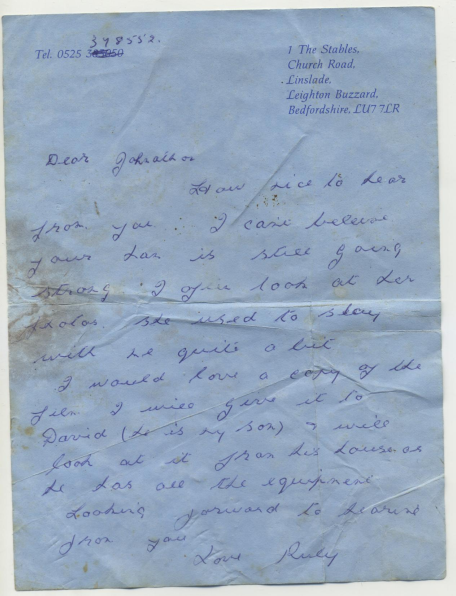 378552.
Tel. 0525
1 The Stables,
Church Road,
Linslade,
Leighton Buzzard,
Bedfordshire, LU7 7LR
Dear Johnathon
How nice to hear
from you. I cant believe
your Nan is still going
strong I often look at her
photos. She used to stay
with me quite a bit
I would love a copy of the
film I will give it to
David (he is my son) & will
look at it from his house as
he has all the equipment
Looking forward to hearing
from you
Love Ruby